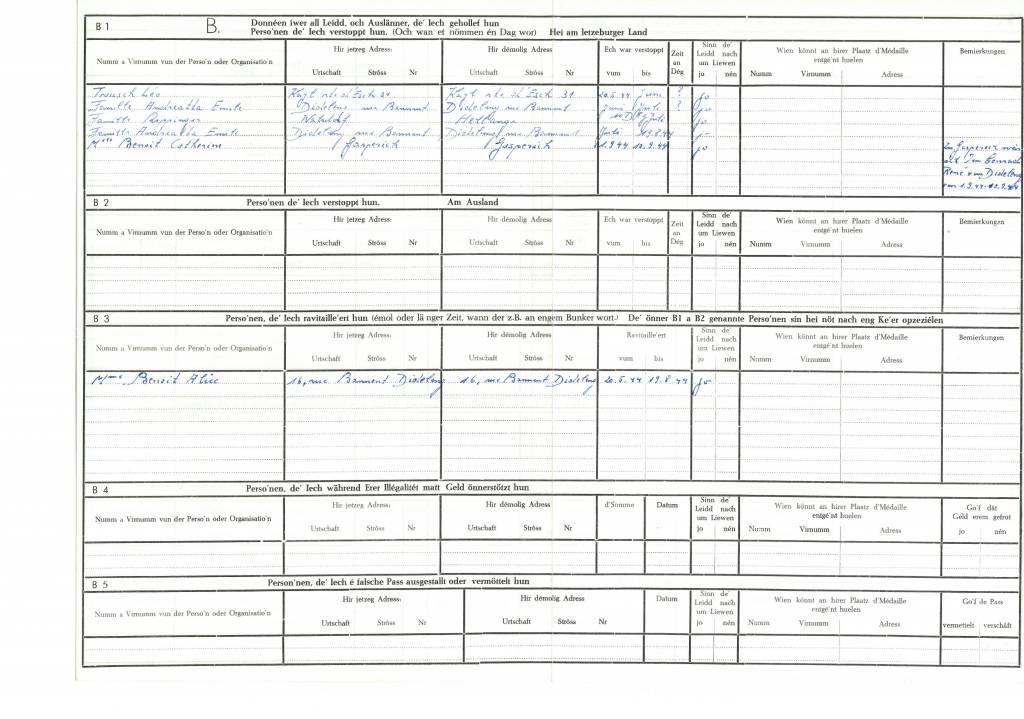 B 1 B. Donnéen iwer all Leidd, och Auslänner, de' Iech gehollef hun
Perso'nen de' Iech verstoppt hun. (Och wan et nömmen én Dag wor) Hei am letzeburger Land
Numm a Virnumm vun der Perso'n oder Organisatio'n Hir jetzeg Adress: Hir démolig Adress: Ech war verstoppt Zeit an Dég Sinn de' Leidd nach um Liewen Wien könnt an hirer Plaatz d'Médaille entgé'nt huelen Bemierkungen
Urtschaft Ströss Nr Urtschaft Ströss Nr vum bis jo nén Numm Virnumm Adress
Léo Kayl rte d'Esch 31 Kayl rte d'Esch 31 20.5.44 Juni ? jo
Famille Andreatta Emile Dideleng rue Bannent Dideleng rue Bannent Juni Juli ? jo
Famille Hellange Juli jo
Famille Andreatta Emile Dideleng rue Bannent Dideleng rue Bannent Juli 19.8.44 jo
Mme Benoit Catherine Gasperich Gasperich 1.9.44 10.9.44 jo
Gasperich
René vun Dideleng
B 2 Perso'nen de' Iech verstoppt hun. Am Ausland
Numm a Virnumm vun der Perso'n oder Organisatio'n Hir jetzeg Adress: Hir démolig Adress: Ech war verstoppt Zeit an Dég Sinn de' Leidd nach um Liewen Wien könnt an hirer Plaatz d'Médaille entgé'nt huelen Bemierkungen
Urtschaft Ströss Nr Urtschaft Ströss Nr vum bis jo nén Numm Virnumm Adress
B 3 Perso'nen, de' Iech ravitaille'ert hun (émol oder länger Zeit, wann der z.B. an engem Bunker wort.) De' önner B1 a B2 genannte Perso'nen sin hei nöt nach eng Ke'er opzeziélen
Numm a Virnumm vun der Perso'n oder Organisatio'n Hir jetzeg Adress: Hir démolig Adress: Ravitaille'ert Sinn de' Leidd nach um Liewen Wien könnt an hirer Plaatz d'Médaille entgé'nt huelen Bemierkungen
Urtschaft Ströss Nr Urtschaft Ströss Nr vum bis jo nén Numm Virnumm Adress
Mme Benoit Alice 16, rue Bannent Dideleng 16, rue Bannent Dideleng 20.5.44 19.8.44 jo
B 4 Perso'nen, de' Iech während Erer Illégalitét matt Geld önnerstötzt hun
Numm a Virnumm vun der Perso'n oder Organisatio'n Hir jetzeg Adress: Hir démolig Adress d'Somme Datum Sinn de' Leidd nach um Liewen Wien könnt an hirer Plaatz d'Médaille entgé'nt huelen Go'f dät Geld erem gefrot
Urtschaft Ströss Nr Urtschaft Ströss Nr jo nén Numm Virnumm Adress jo nén
B 5 Person'nen, de' Iech é falsche Pass ausgestallt oder vermöttelt hun
Numm a Virnumm vun der Perso'n oder Organisatio'n Hir jetzeg Adress: Hir démolig Adress: Datum Sinn de' Leidd nach um Liewen Wien könnt an hirer Plaatz d'Médaille entgé'nt huelen Go'f de Pass
Urtschaft Ströss Nr Urtschaft Ströss Nr jo nén Numm Virnumm Adress vermettelt verschäft